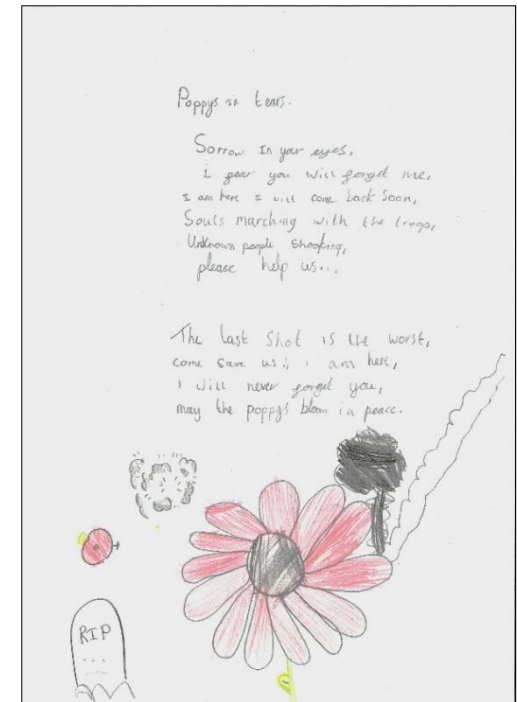 Poppys in tears.
Sorrow In your eyes,
i fear you will forget me,
I am here I will come back Soon,
Souls marching with the troops,
Unknown people shooting,
please help us...
The last Shot is the worst,
come save us; i am here,
I will never forget you,
may the poppys bloom in peace.
RIP